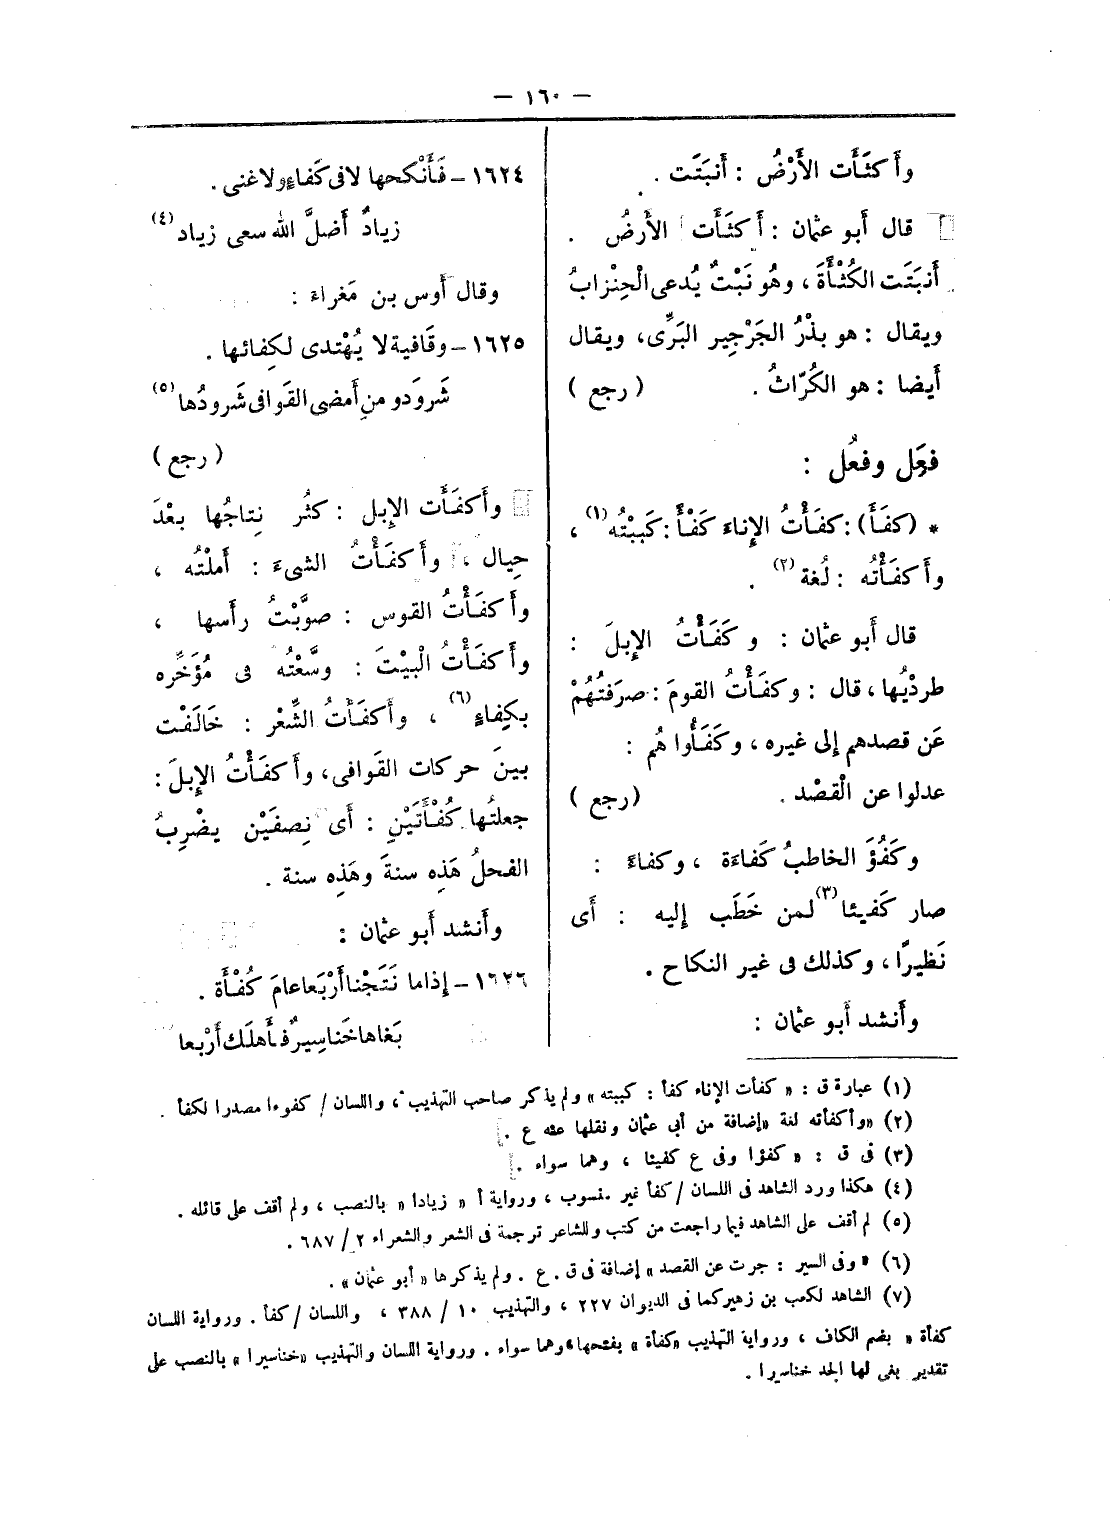 — ١٦٠ —
وأَكثَأَت الأَرْضُ : أَنبَتَت .
قال أَبو عثمان : أَكثَأَت الأَرضُ .
أَنبَتَت الكُثْأَةَ ، وهُو نَبْتٌ يُدعى الْحِنْزابُ
ويقال : هو بذْرُ الجَرْجِير البَرِّى، ويقال
أَيضا : هو الكُرّاثُ . ( رجع )
فعَل وفعُل :
* (كفَأَ): كفَأْتُ الإِناءَ كَفْأً: كَببْتُه (١) ،
وأَكفَأْتُه : لُغة (٢) .
قال أَبو عثمان : وكَفَأْتُ الإِبلَ :
طردْتُها ، قال : وكفَأْتُ القومَ : صرَفتُهُمْ
عَن قصدهم إِلى غيره ، وكَفَأُوا هُم :
عدلوا عن الْقصْد . (رجع )
وكَفُؤَ الخاطبُ كَفاءَة ، وكفاءً :
صار كَفيئا (٣) لمن خَطَب إِليه : أَى
نَظيرًا ، وكذلك فى غير النكاح .
وأَنشد أَبو عثمان :
١٦٢٤ – فَأَنْكحها لا فى كَفاءٍ ولا غنى .
زيادٌ أَضلَّ الله سعى زياد (٤)
وقال أَوس بن مَغراءَ :
١٦٢٥ – وقَافية لا يُهْتدى لكِفائها .
شَرودٍ ومنِ أَمضى القَوافى شَرودُها (٥)
( رجع )
وأَكفَأَت الإِبل : كثُر نِتاجُها بعْدَ
حِيال ، وأَكفَأْتُ الشىءَ : أَملْتُه ،
وأَكفَأْتُ القوس : صوَّبْتُ رأسها ،
وأَكفَأْتُ الْبيْتَ : وسَّعْتُه فى مُؤَخَّره
بكِفاءٍ (٦) ، وأَكفَأتُ الشِّعْر : خَالَفْت
بينَ حركات القوافى، وأَكفَأْتُ الإِبلَ :
جعلتُها كُفْأَتَيْنِ : أَى نِصفَيْن يضْرِبُ
الفحلُ هَذِه سنةَ وهَذِه سنة .
وأَنشد أَبو عثمان :
١٦٢٦ – إِذا ما نَتَجْنا أَرْبَعا عامَ كُفْأَة .
بَغاها خَناسِيرٌ فأَهلَك أَرْبعا
(١) عبارة ق : « كفأت الإناء كفأ : كببته » ولم يذكر صاحب التهذيب ، واللسان / كفوءا مصدرا لكفأ .
(٢) «وأكفأته لغة «إضافة من أبى عثمان ونقلها عنه ع .
(٣) فى ق : « كفؤا وفى ع كفيئا ، وهما سواء .
(٤) هكذا ورد الشاهد فى اللسان / كفأ غير منسوب ، ورواية أ « زيادا » بالنصب ، ولم أقف على قائله .
(٥) لم أقف على الشاهد فيما راجعت من كتب وللشاعر ترجمة فى الشعر والشعراء ٢ / ٦٨٧ .
(٦) « وفى السير : جرت عن القصد » إضافة فى ق . ع . ولم يذكرها «أبو عثمان » .
(٧) الشاهد لكعب بن زهير كما فى الديوان ٢٢٧ ، والتهذيب ١٠ / ٣٨٨ ، واللسان / كفأ . ورواية اللسان
كفأة « بضم الكاف ، ورواية التهذيب «كفأة » بفتحها، وهما سواء . ورواية اللسان والتهذيب «خناسيرا » بالنصب على
تقدير بغى لها الجد خناسيرا .